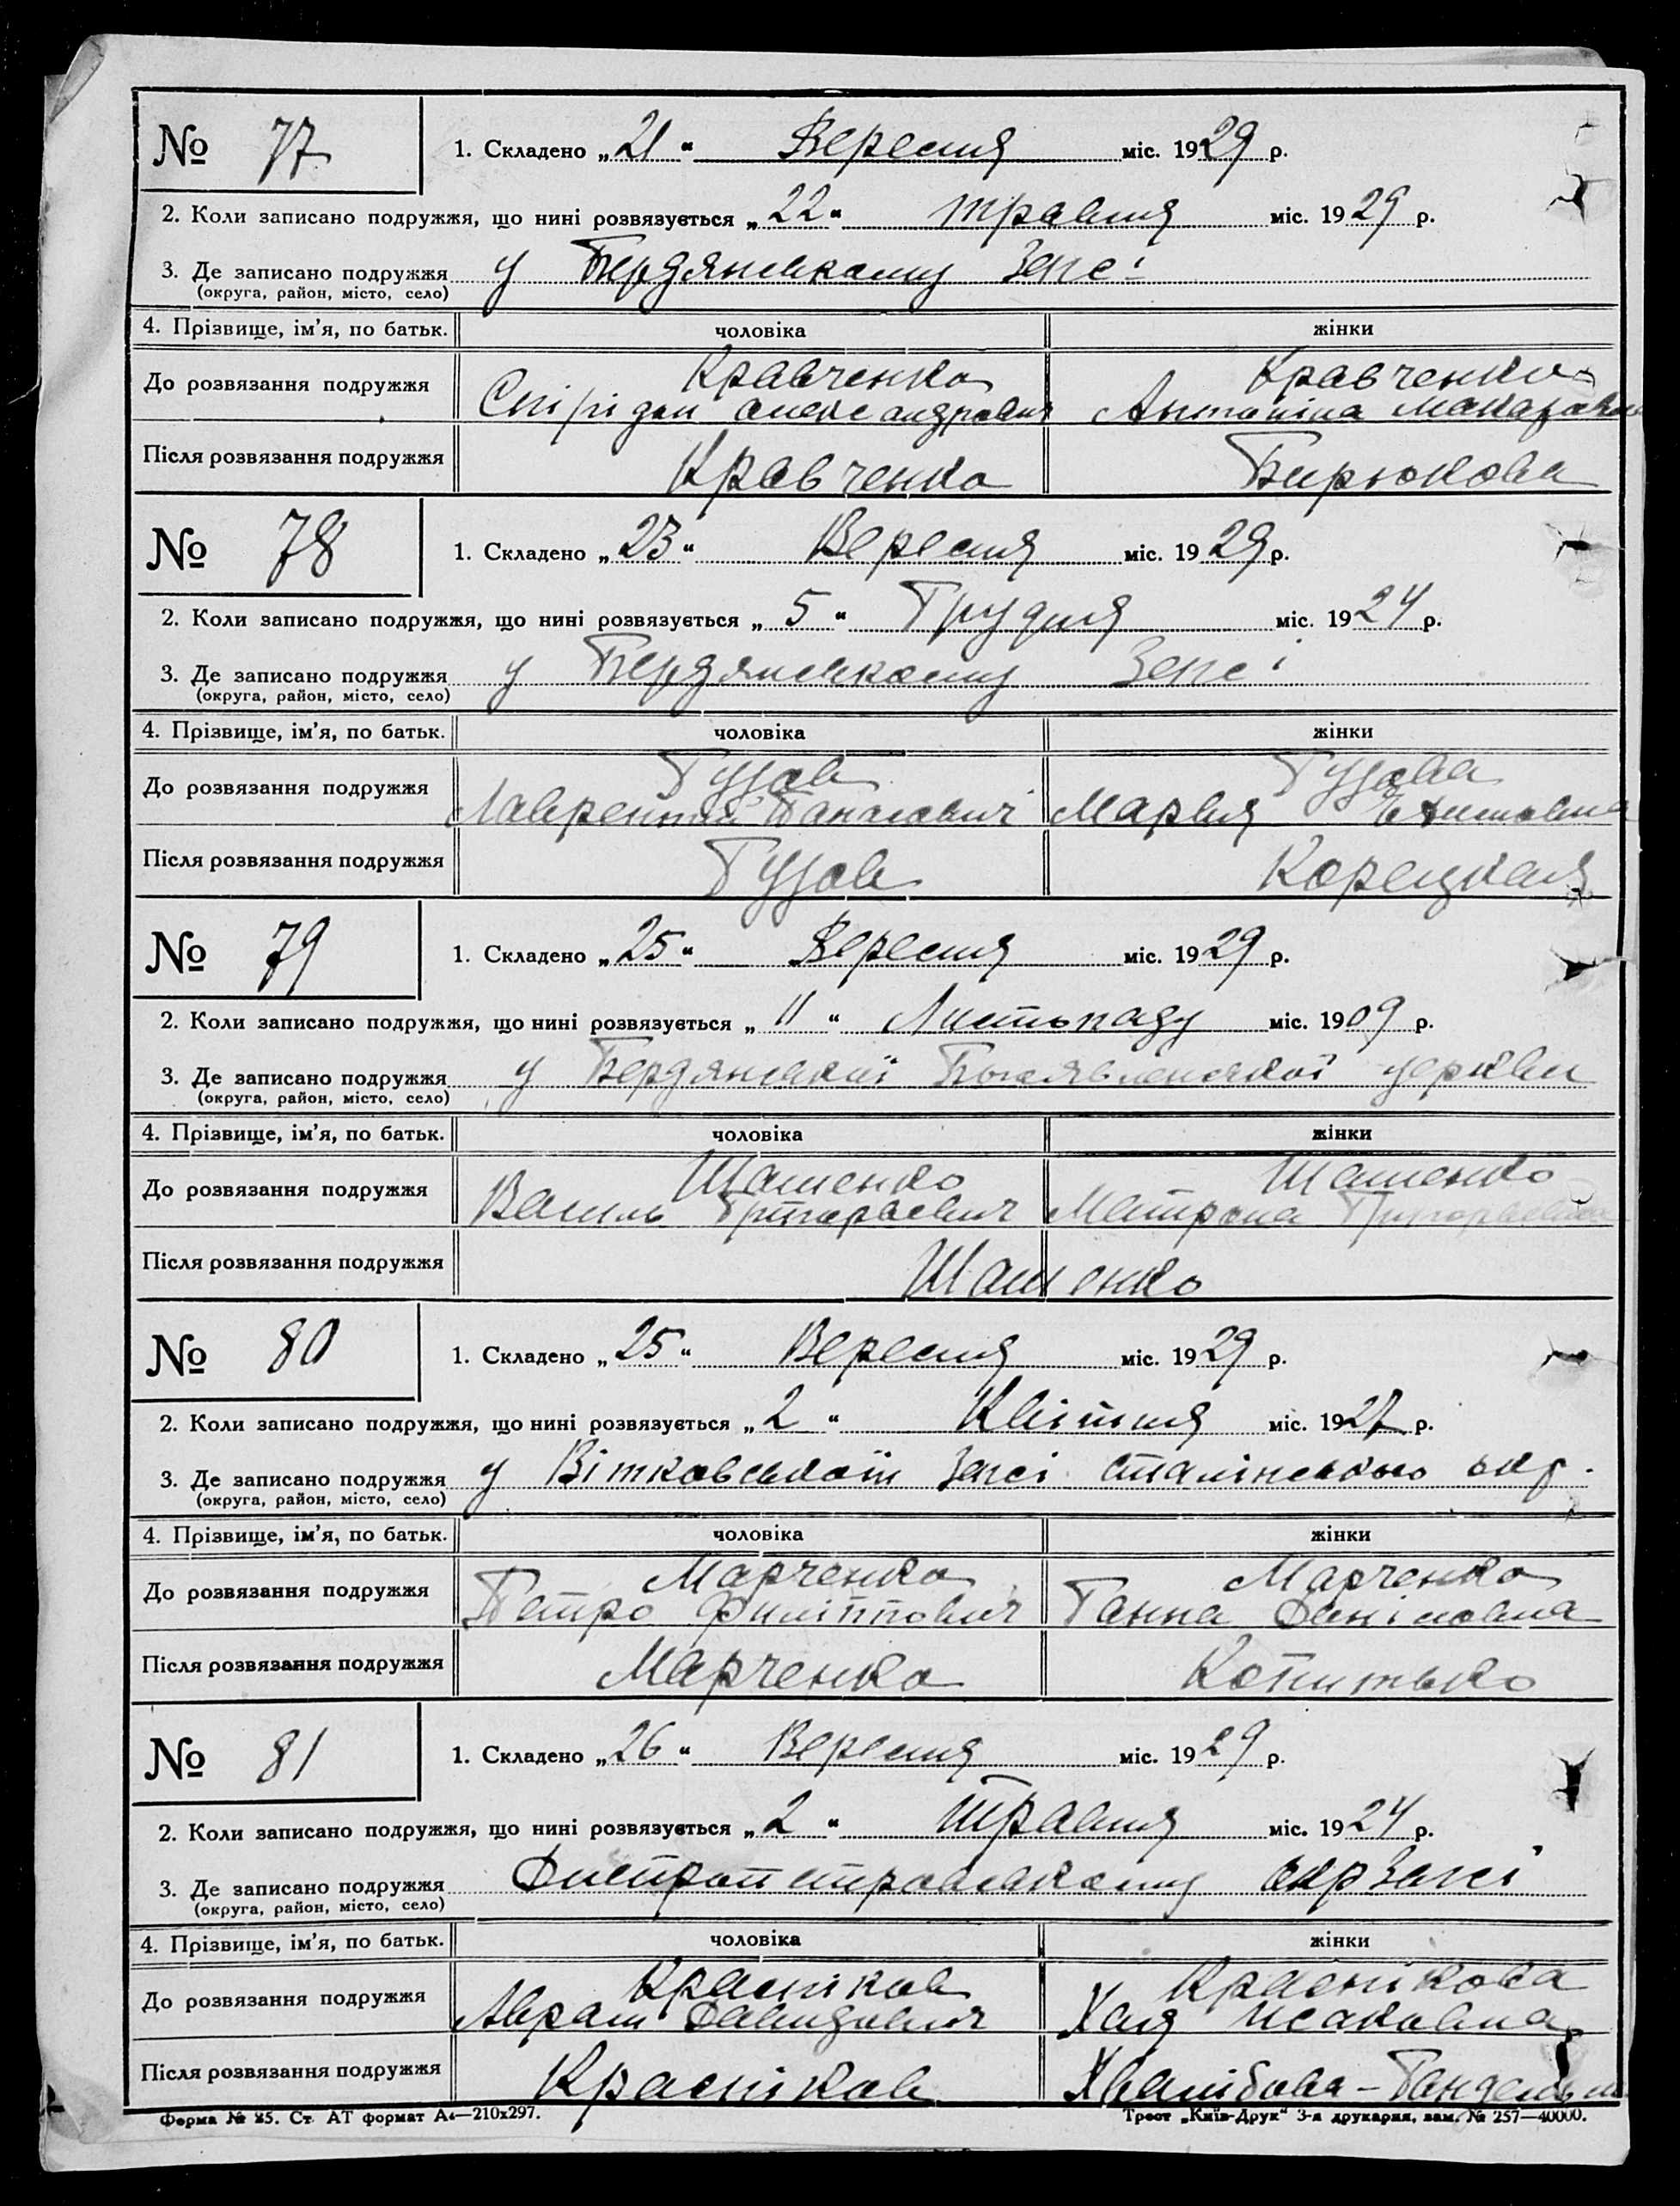 № 77
1. Складено „21“ Вересня міс. 1929 р.
2. Коли записано подружжя, що нині розвязується „22“ травня міс. 1929 р.
3. Де записано подружжя у Бердянському Загсі
(округа, район, місто, село)
4. Прізвище, ім’я, по батьк. чоловіка жінки
До розвязання подружжя Кравченко Кравченко
Спірідон Александрович Антоніна Макаровна
Після розвязання подружжя Кравченко Бирюкова
№ 78
1. Складено „23“ Вересня міс. 1929 р.
2. Коли записано подружжя, що нині розвязується „5“ Грудня міс. 1924 р.
3. Де записано подружжя у Бердянському Загсі
(округа, район, місто, село)
4. Прізвище, ім’я, по батьк. чоловіка жінки
До розвязання подружжя
Лаврентій Панасович Марья
Після розвязання подружжя Корецкая
№ 79
1. Складено „25“ Вересня міс. 1929 р.
2. Коли записано подружжя, що нині розвязується „11“ Листопаду міс. 1909 р.
3. Де записано подружжя у Бердянській церкви
(округа, район, місто, село)
4. Прізвище, ім’я, по батьк. чоловіка жінки
До розвязання подружжя Шашенко Шашенко
Василь Григорьевич Матрона Григорьевна
Після розвязання подружжя Шашенко
№ 80
1. Складено „25“ Вересня міс. 1929 р.
2. Коли записано подружжя, що нині розвязується „2“ Квітня міс. 1927 р.
3. Де записано подружжя у Вітковської Загсі Сталінського окр.
(округа, район, місто, село)
4. Прізвище, ім’я, по батьк. чоловіка жінки
До розвязання подружжя Марченко Марченко
Петро Филіппович Ганна Даніловна
Після розвязання подружжя Марченко Копитько
№ 81
1. Складено „26“ Вересня міс. 1929 р.
2. Коли записано подружжя, що нині розвязується „2“ травня міс. 1924 р.
3. Де записано подружжя Днепропетровському окрЗагсі
(округа, район, місто, село)
4. Прізвище, ім’я, по батьк. чоловіка жінки
До розвязання подружжя Красніков Краснікова
Аврам Давидович Хая Исаковна
Після розвязання подружжя Красніков
Форма № 25. Ст. АТ формат А₄—210х297. Трест „Київ-Друк“ 3-я друкарня, зам. № 257—40000.